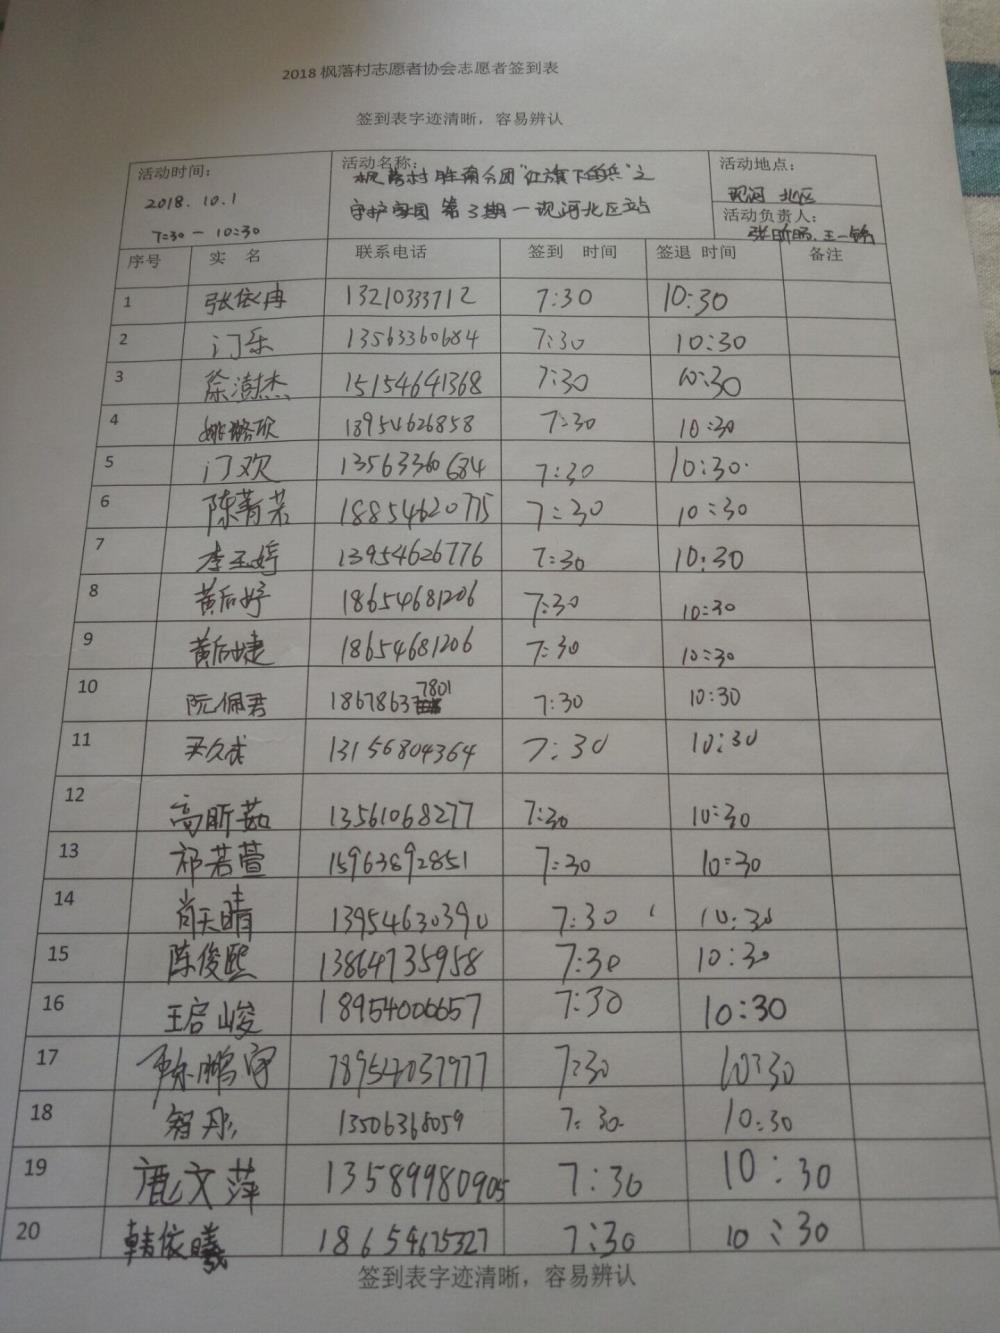 2018 枫落村志愿者协会志愿者签到表
签到表字迹清晰，容易辨认
活动时间： 活动名称： 活动地点：
2018.10.1 枫落村胜南分团“红旗下的兵”之 现河北区
7:30 — 10:30 守护家园 第3期—现河北区站 活动负责人：
王一
序号 实 名 联系电话 签到 时间 签退 时间 备注
1 张依冉 13210333712 7:30 10:30
2 门乐 13563360684 7:30 10:30
3 徐澍杰 15154641368 7:30 10:30
4 姚 13954626858 7:30 10:30
5 门欢 13563360684 7:30 10:30
6 陈菁若 18854620775 7:30 10:30
7 李玉婷 13954626776 7:30 10:30
8 黄后婷 18654681206 7:30 10:30
9 黄后婕 18654681206 7:30 10:30
10 阮佩君 18678637801 7:30 10:30
11 13156804364 7:30 10:30
12 高昕茹 13561068277 7:30 10:30
13 祁若萱 15963892851 7:30 10:30
14 尚天晴 13954630390 7:30 10:30
15 陈俊熙 13864735958 7:30 10:30
16 王启峻 18954006657 7:30 10:30
17 鹏宇 18954037977 7:30 10:30
18 智彤 13506368059 7:30 10:30
19 鹿文萍 13589980905 7:30 10:30
20 韩依曦 18654675327 7:30 10:30
签到表字迹清晰，容易辨认